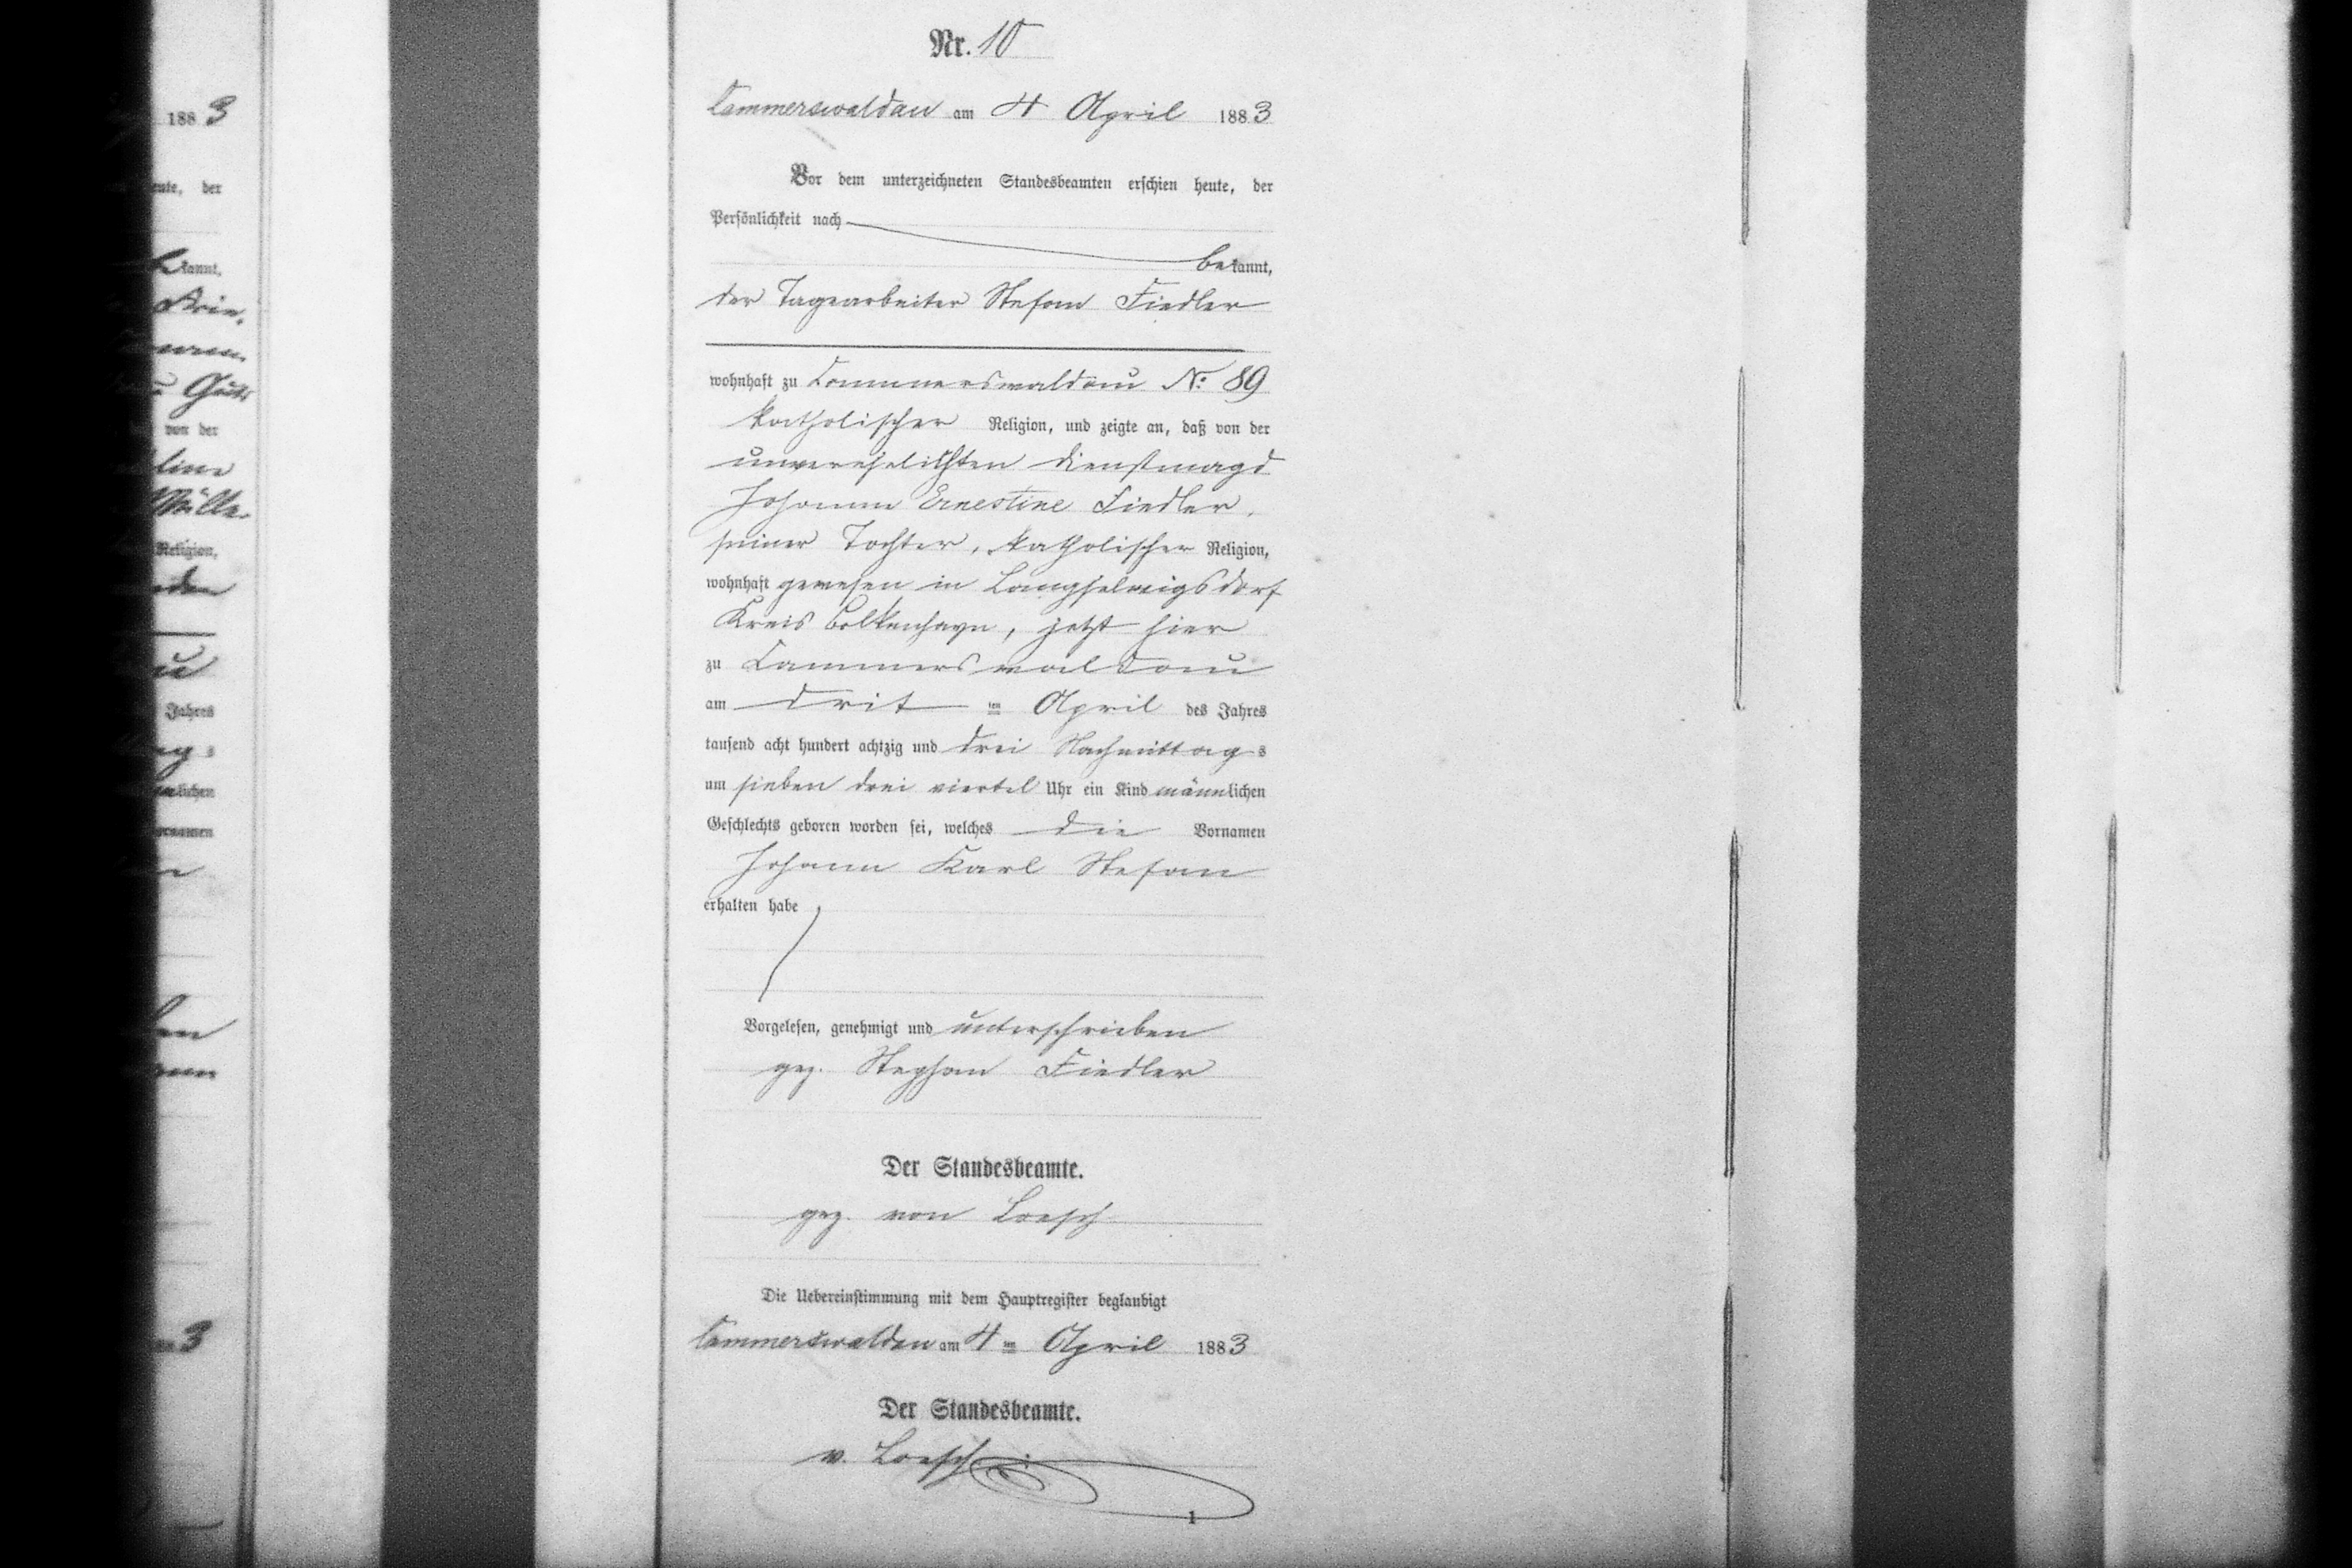 188 3
der
kannt,
von der
line
Religion,
Jahres
lichen
3
Nr. 10
Cammerswaldau am 4 April 1883
Vor dem unterzeichneten Standesbeamten erschien heute, der
Persönlichkeit nach
bekannt,
der Tagearbeiter Stefan Fiedler
wohnhaft zu Cammerswaldau No: 89
katholischer Religion, und zeigte an, daß von der
unverehelichten Dienstmagd
Johanne Ernestine Fiedler,
seiner Tochter, katholischer Religion,
wohnhaft gewesen in Langhelwigsdorf
Kreis Bolkenhayn, jetzt hier
zu Cammerswaldau
am dritten April des Jahres
tausend acht hundert achtzig und drei Nachmittags
um sieben drei viertel Uhr ein Kind männlichen
Geschlechts geboren worden sei, welches die Vornamen
Johann Karl Stefan
erhalten habe
Vorgelesen, genehmigt und unterschrieben
gez. Stephan Fiedler
Der Standesbeamte.
gez. von Loesch
Die Uebereinstimmung mit dem Hauptregister beglaubigt
Cammerswaldau am 4ten April 1883
Der Standesbeamte.
v. Loesch
1